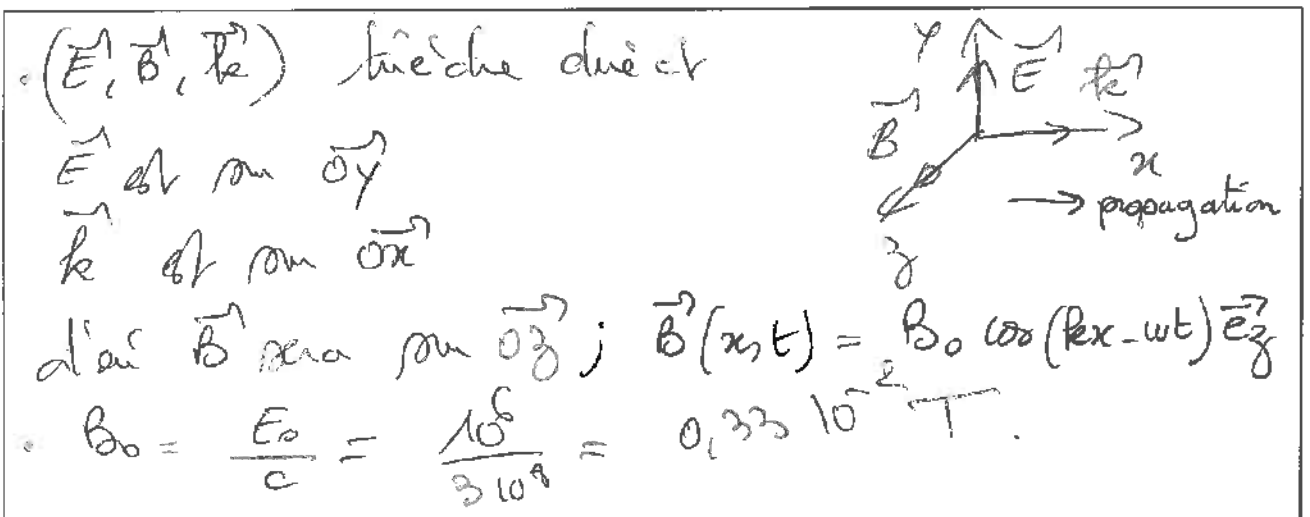 . (E⃗, B⃗, k⃗) trièdre direct
E⃗ est sur O⃗y
k⃗ est sur O⃗x
d'où B⃗ sera sur O⃗z ; B⃗(x,t) = B₀ cos(kx-ωt) e⃗z
. B₀ = E₀/c = 10⁶/3 10⁸ = 0,33 10⁻² T.
Y E⃗ k⃗
B⃗
x
→ propagation
z